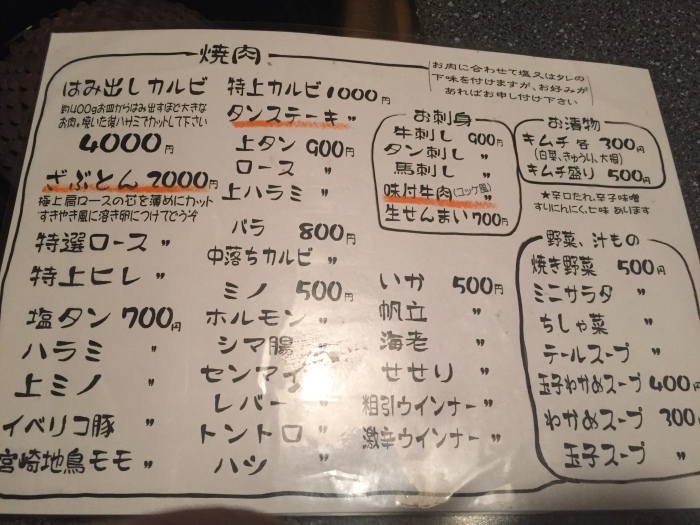 焼肉
お肉に合わせて塩又はタレの
下味を付けますが、お好みが
あればお申し付け下さい
はみ出しカルビ
約400gお皿からはみ出すほど大きな
お肉。焼いた後ハサミでカットして下さい
4000円
ざぶとん 2000円
極上肩ロースの芯を薄めにカット
すきやき風に溶き卵につけてどうぞ
特選ロース 〃
特上ヒレ 〃
塩タン 700円
ハラミ 〃
上ミノ 〃
イベリコ豚 〃
宮崎地鳥モモ 〃
特上カルビ 1000円
タンステーキ 〃
上タン 900円
ロース 〃
上ハラミ 〃
バラ 800円
中落ちカルビ 〃
ミノ 500円
ホルモン 〃
シマ腸 〃
センマイ 〃
レバー 〃
トントロ 〃
ハツ 〃
お刺身
牛刺し 900円
タン刺し 〃
馬刺し 〃
味付牛肉(ユッケ風) 〃
生せんまい 700円
いか 500円
帆立 〃
海老 〃
せせり 〃
粗引ウインナー 〃
激辛ウインナー 〃
お漬物
キムチ各 300円
(白菜、きゅうり、大根)
キムチ盛り 500円
★辛口たれ、辛子味噌
すりにんにく、七味 あります
野菜、汁もの
焼き野菜 500円
ミニサラダ 〃
ちしゃ菜 〃
テールスープ 〃
玉子わかめスープ 400円
わかめスープ 300円
玉子スープ 〃